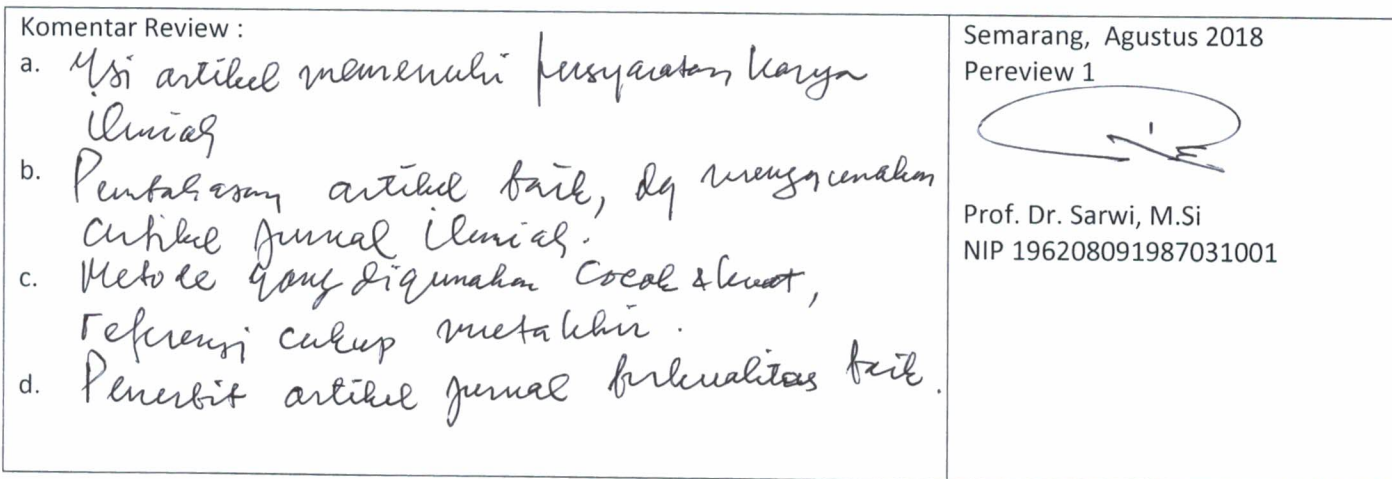 Komentar Review :
a. Isi artikel memenuhi persyaratan karya
ilmiah
b. Pembahasan artikel baik, dg menggunakan
artikel jurnal ilmiah.
c. Metode yang digunakan cocok & kuat,
referensi cukup mutakhir.
d. Penerbit artikel jurnal berkualitas baik.
Semarang, Agustus 2018
Pereview 1
Prof. Dr. Sarwi, M.Si
NIP 196208091987031001